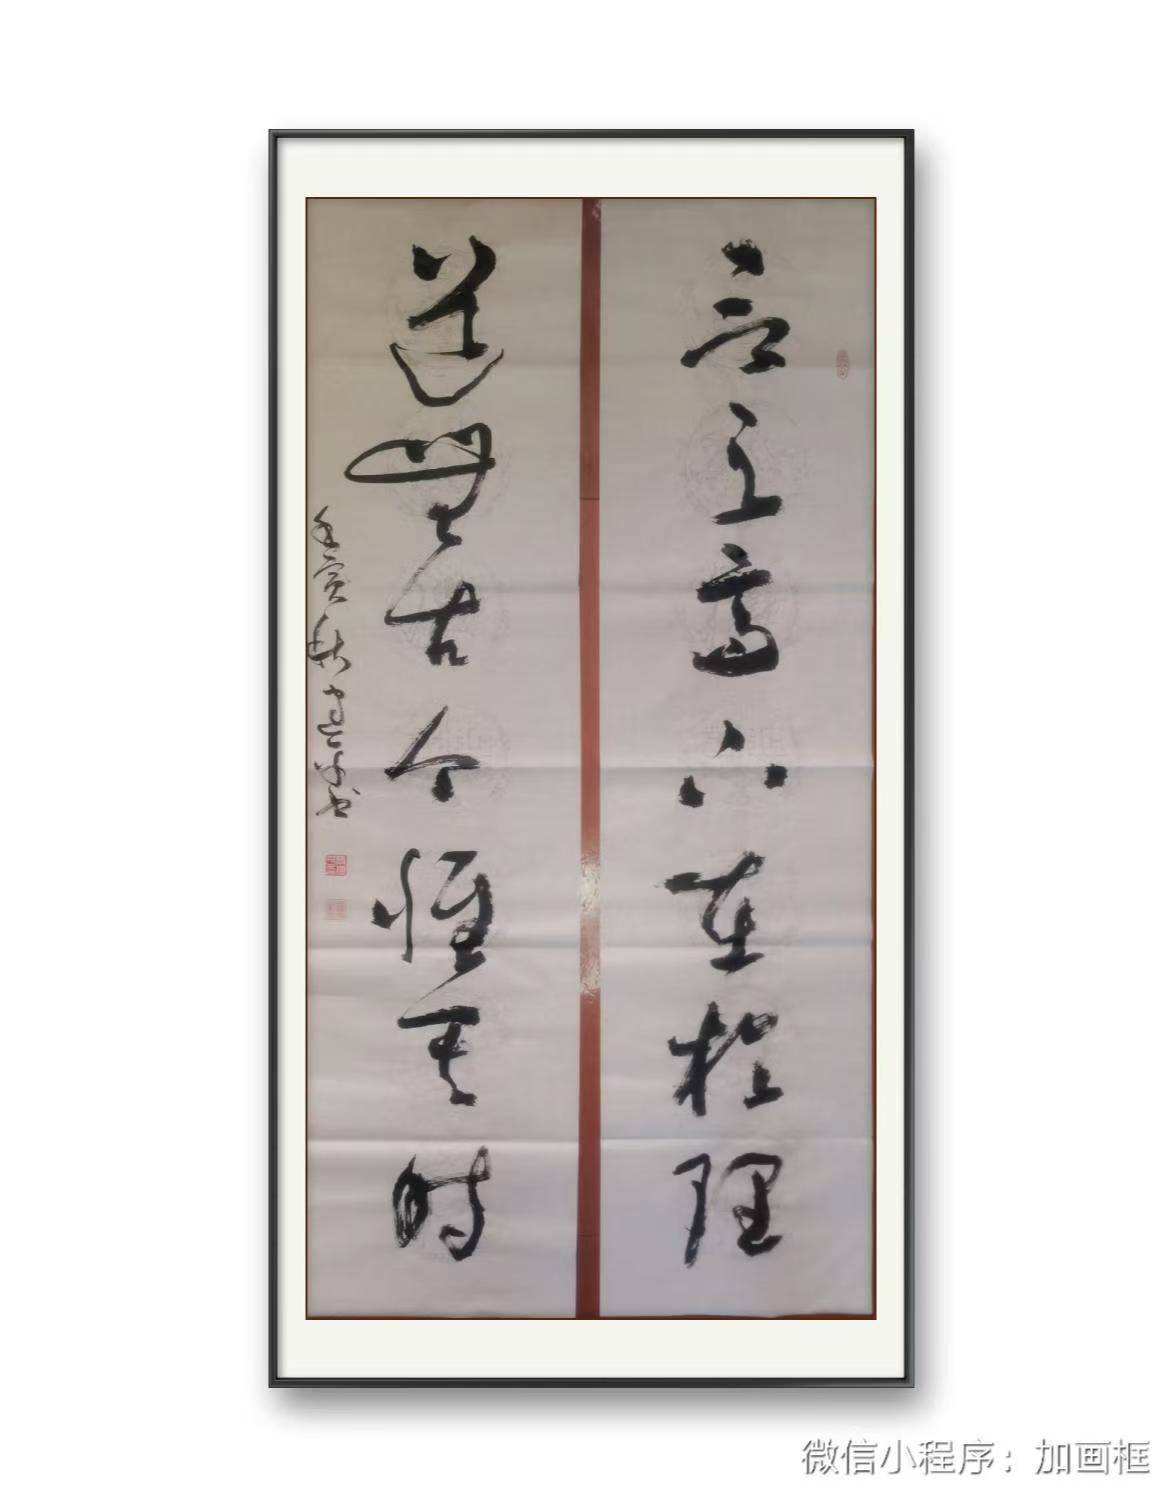 言之高下在於理
道無古今惟其時
壬寅秋
微信小程序：加画框